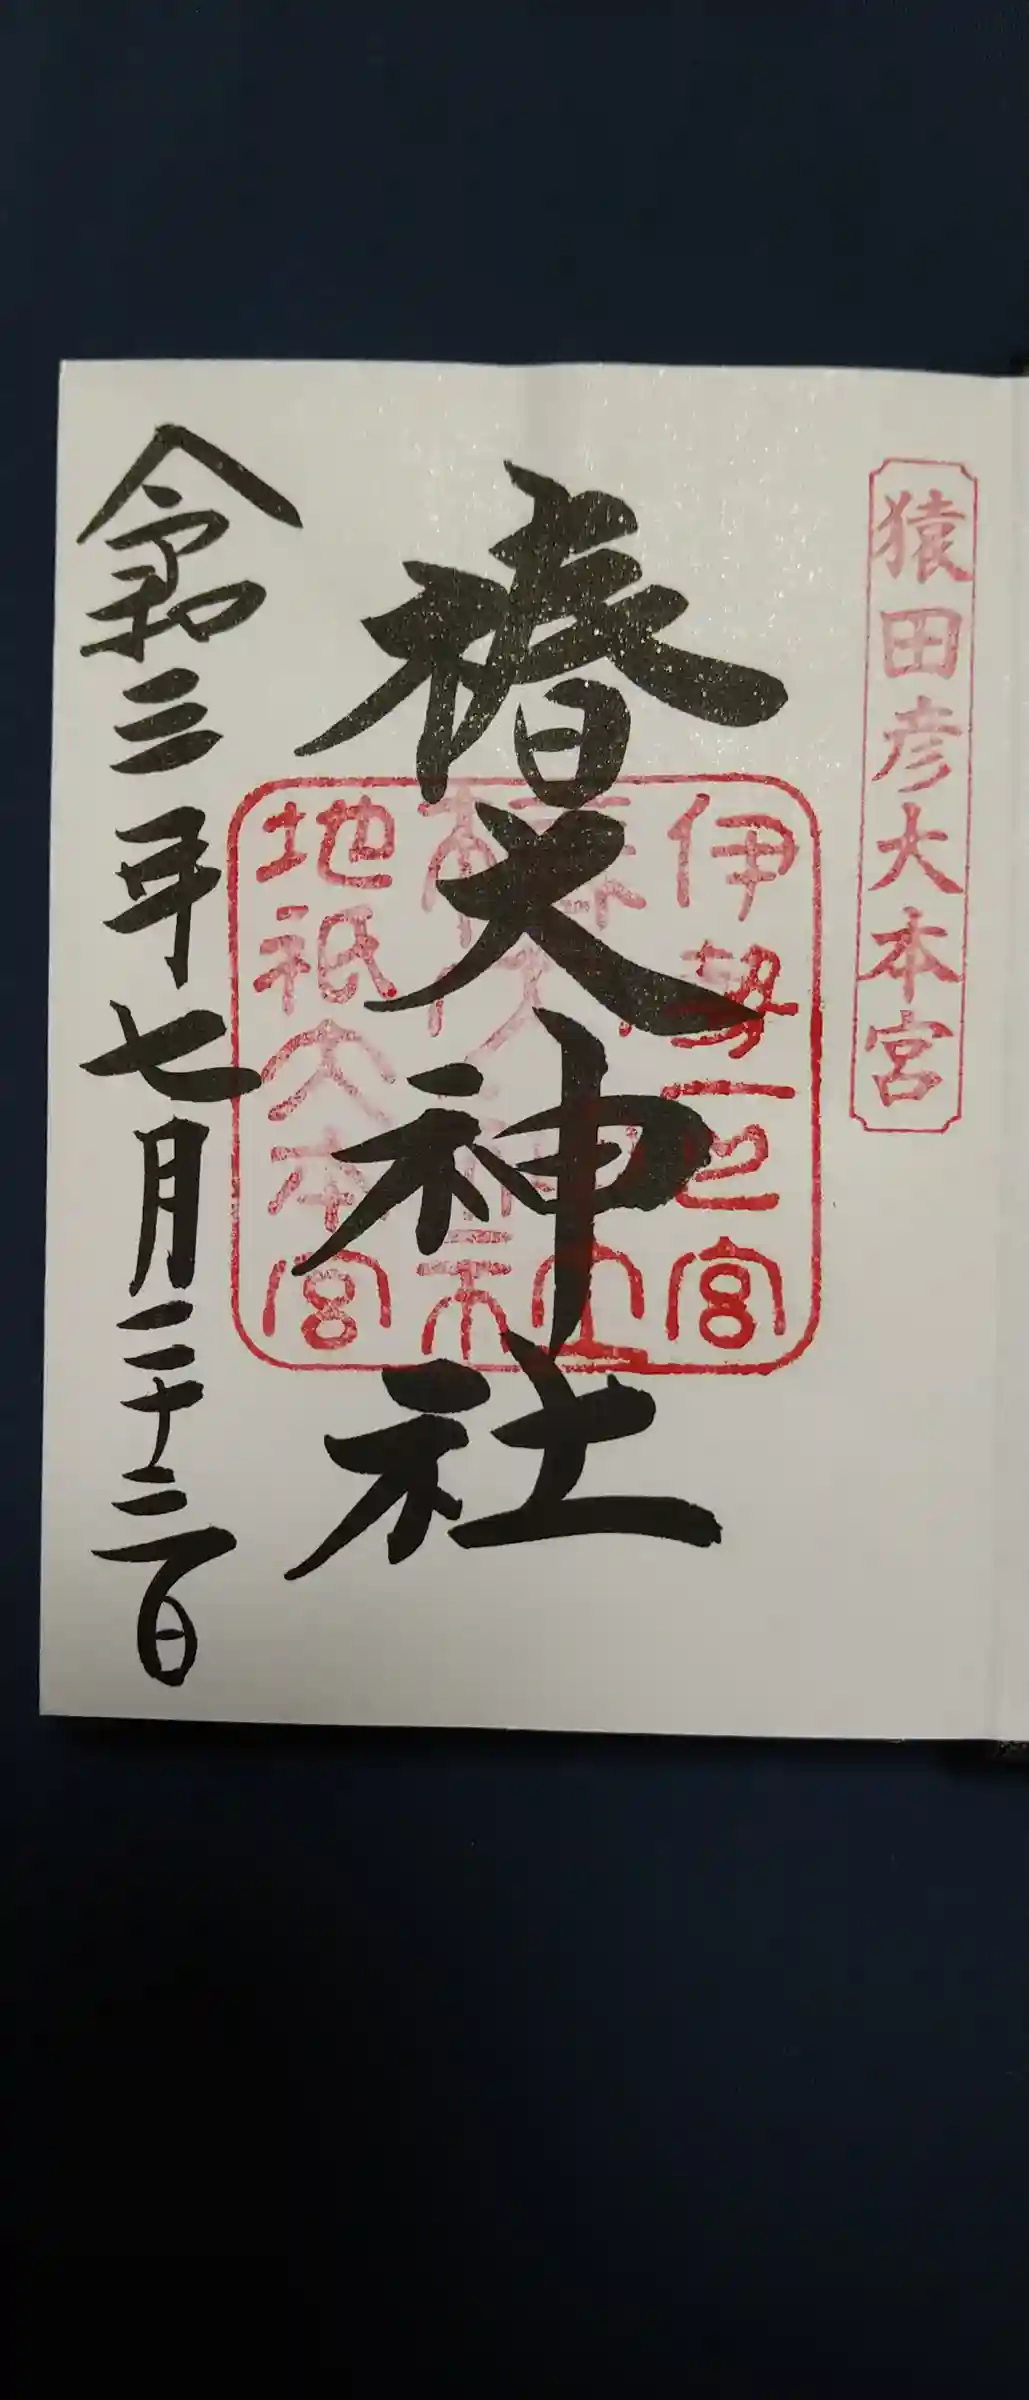 猿田彦大本宮
椿大神社
伊勢一之宮
地祇大本宮
令和三年七月二十三日